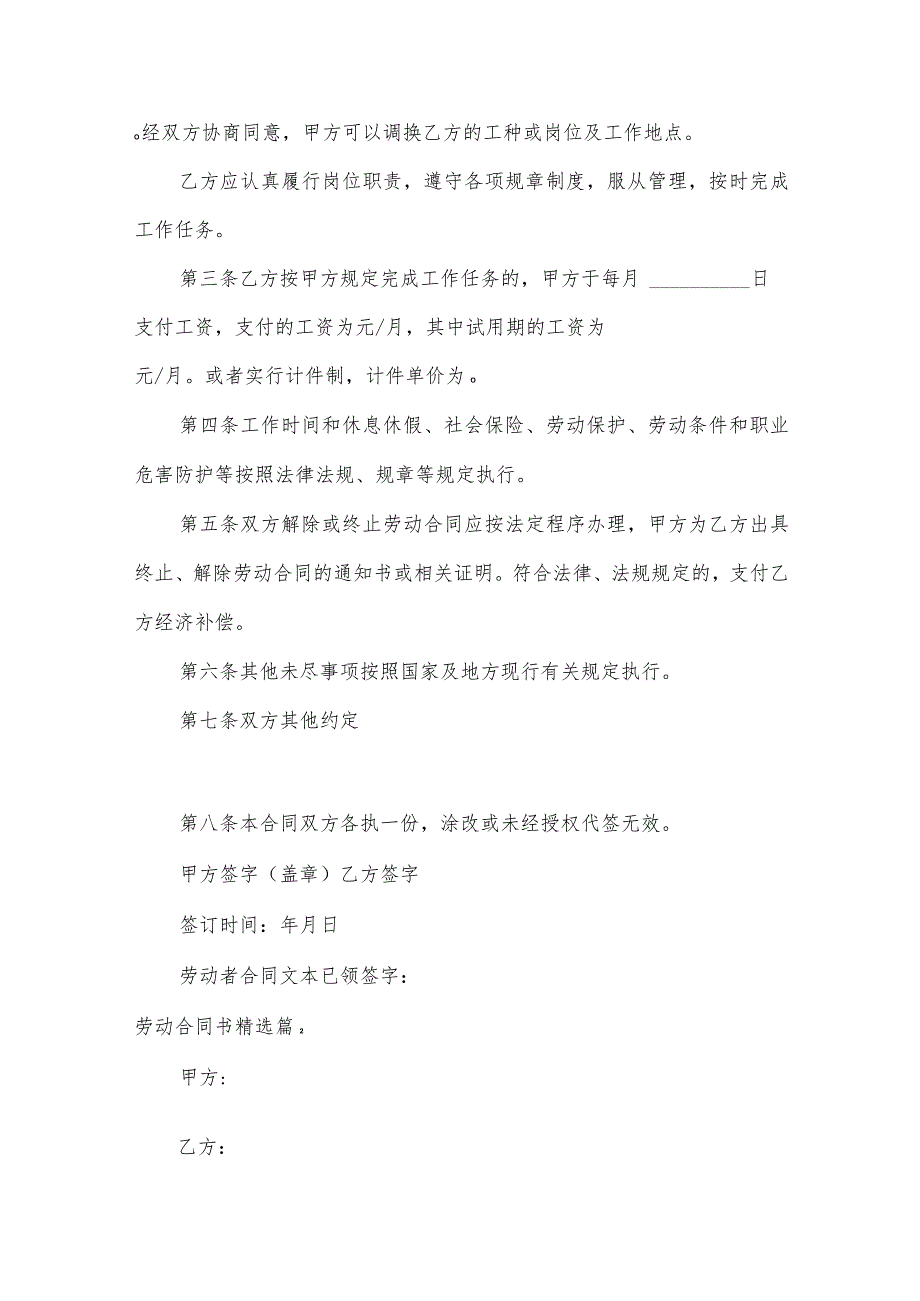 。经双方协商同意，甲方可以调换乙方的工种或岗位及工作地点。
乙方应认真履行岗位职责，遵守各项规章制度，服从管理，按时完成
工作任务。
第三条乙方按甲方规定完成工作任务的，甲方于每月 __________日
支付工资，支付的工资为元/月，其中试用期的工资为
元/月。或者实行计件制，计件单价为。
第四条工作时间和休息休假、社会保险、劳动保护、劳动条件和职业
危害防护等按照法律法规、规章等规定执行。
第五条双方解除或终止劳动合同应按法定程序办理，甲方为乙方出具
终止、解除劳动合同的通知书或相关证明。符合法律、法规规定的，支付乙
方经济补偿。
第六条其他未尽事项按照国家及地方现行有关规定执行。
第七条双方其他约定
第八条本合同双方各执一份，涂改或未经授权代签无效。
甲方签字（盖章）乙方签字
签订时间：年月日
劳动者合同文本已领签字：
劳动合同书精选篇₂
甲方:
乙方：